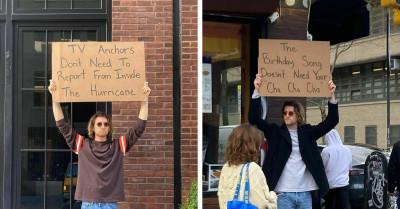 TV Anchors
Don't Need To
Report From Inside
The Hurricane
The
Birthday Song
Doesn't Need Your
"Cha Cha Cha"